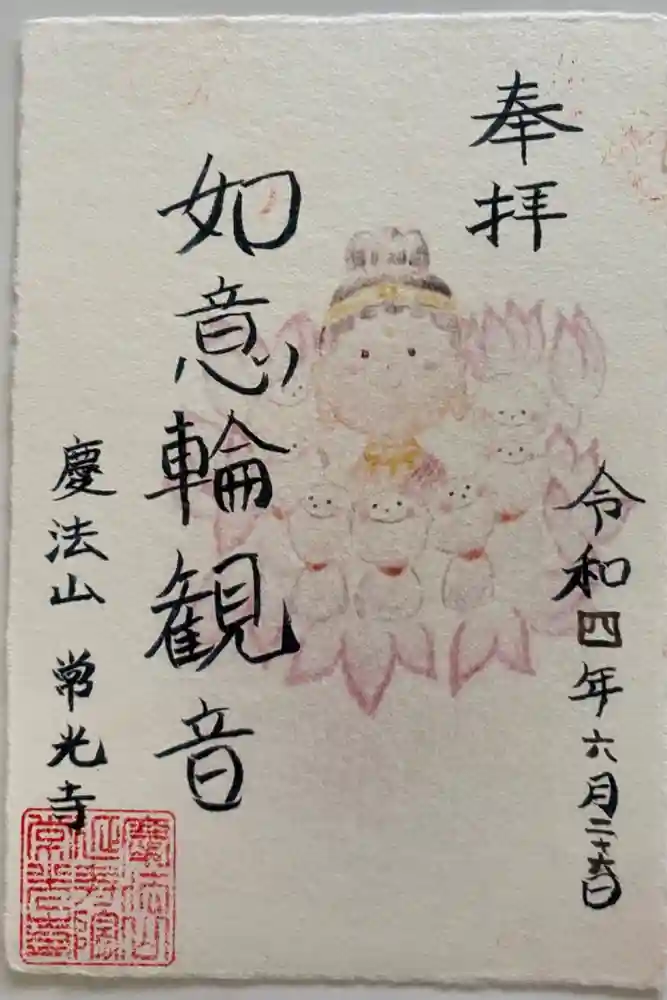 奉拝
令和四年六月二十五日
如意輪観音
慶法山 常光寺
慶法山
延寿院
常光寺